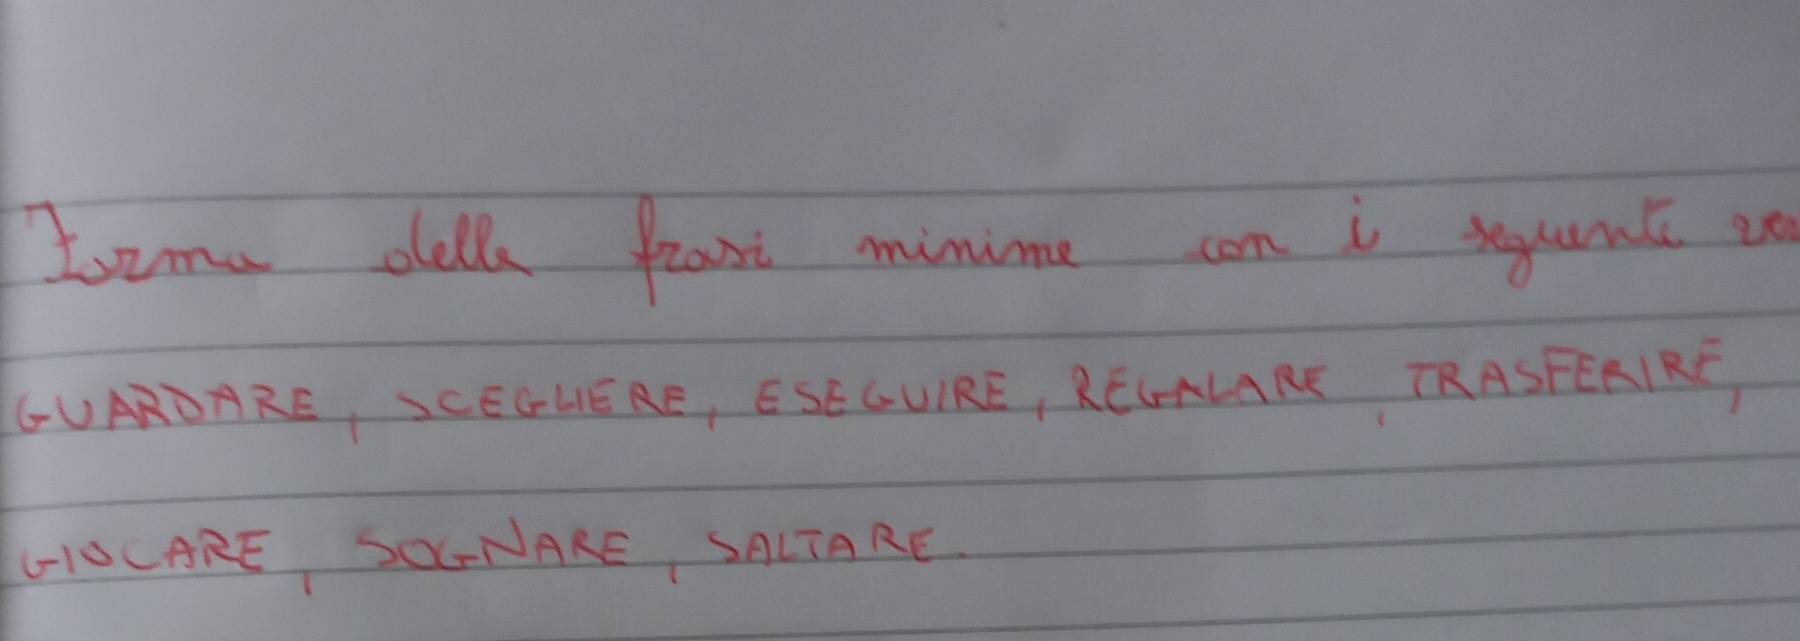 Forma delle frasi minime con i seguenti
GUARDARE, SCEGLIERE, ESEGUIRE, REGALARE, TRASFERIRE,
GIOCARE, SOGNARE, SALTARE.